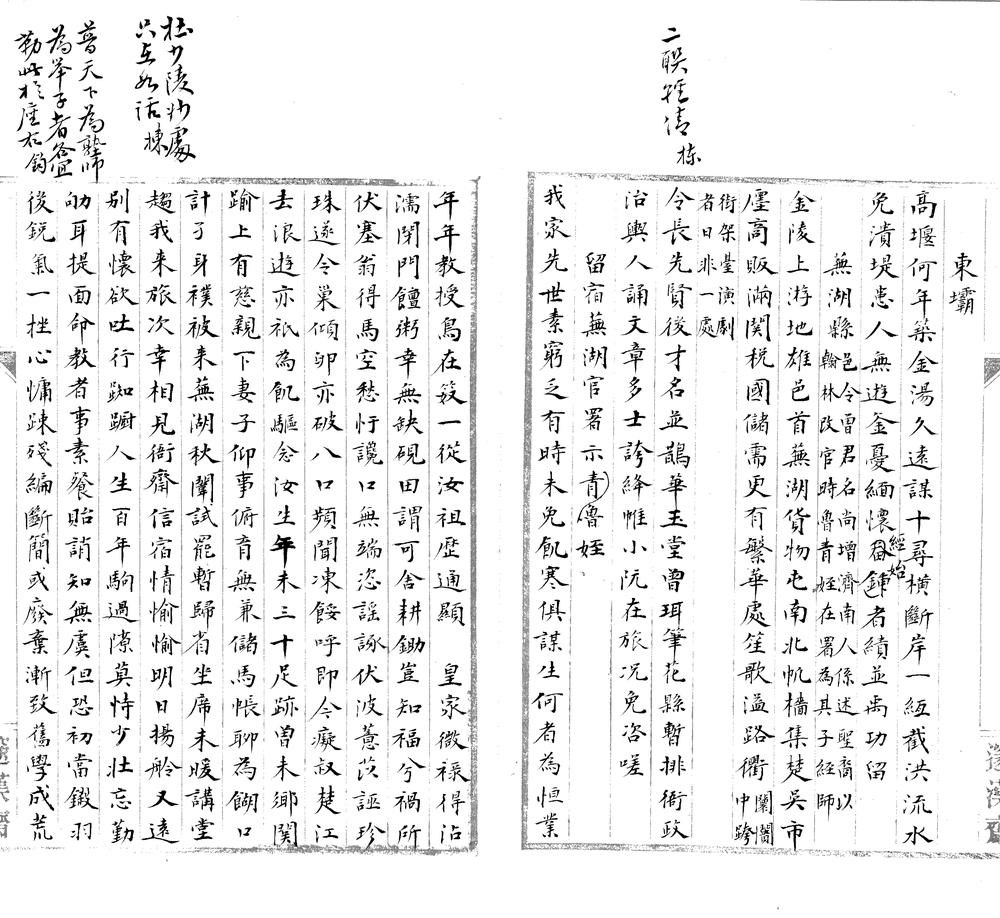 二联輕倩 棟
東壩
高堰何年築金湯久遠謀十尋橫斷岸一徑截洪流水
免潰堤患人無遊釜憂緬懷經始者績並禹功留
無湖縣邑令曾君名尚增濟南人係述聖裔以
翰林改官時魯青姪在署為其子經師
金陵上游地雄邑首蕪湖貨物屯南北帆檣集楚吳市
廛高販滿関税國儲需更有繁華處笙歌溢路衢闤闠
中跨
街架臺演劇
者日非一處
令長先賢後才名並鵲華玉堂曾珥筆花縣暫排衙政
治輿人誦文章多士誇絳帷小阮在旅况免咨嗟
留宿蕪湖官署示青魯姪
我家先世素窮乏有時未免飢寒俱謀生何者為恒業
杜少陵妙處
只在如話棟
普天下為塾師
為舉子者各宜
勒此於座右鈞
年年教授鳥在笯一從汝祖歷通顯 皇家微祿得沾
濡閉門饘粥幸無缺硯田謂可舍耕鋤豈知福兮禍所
伏塞翁得馬空愁忬讒口無端恣謡諑伏波薏苡誣珍
珠遂令巢傾卵亦破八口頻聞凍餒呼即今癡叔楚江
去浪遊亦祇為飢驅念汝生年未三十足跡曾未鄉関
踰上有慈親下妻子仰事俯育無兼儲馬帳聊為餬口
計孑身襆被来蕪湖秋闈試罷暫歸省坐席未暖講堂
趨我来旅次幸相見衙齋信宿情愉愉明日揚舲又遠
别有懷欲吐行踟蹰人生百年駒過隙莫恃少壯忘勤
劬耳提面命教者事素餐貽誚知無虞但恐初當鎩羽
後鋭氣一挫心慵踈殘編斷簡或廢棄漸致舊學成荒